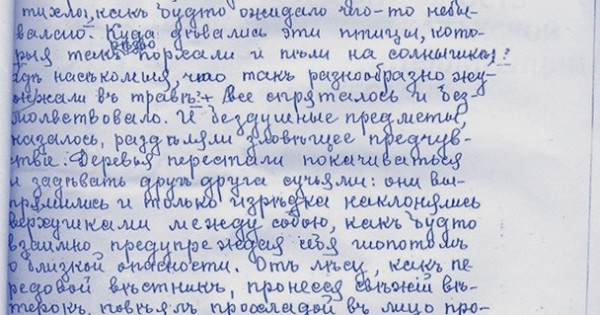 тихло, какъ будто ожидало что-то небы-
валаго. Куда дѣвались эти птицы, кото-
рыя такъ рѣзво порхали и пѣли на солнышкѣ?
гдѣ насѣкомыя, что такъ разнообразно жу-
жжали въ травѣ? + Все спряталось и без-
молвствовало. И бездушные предметы,
казалось, раздѣляли зловѣщее предчув-
ствіе. Деревья перестали покачиваться
и задѣвать другъ друга сучьями: они вы-
прямились и только изрѣдка наклонялись
верхушками между собою, какъ будто
взаимно предупреждая себя шопотомъ
о близкой опасности. Отъ лѣсу, какъ пе-
редовой вѣстникъ, пронесся свѣжій вѣ-
терокъ, повѣялъ прохладой въ лицо про-